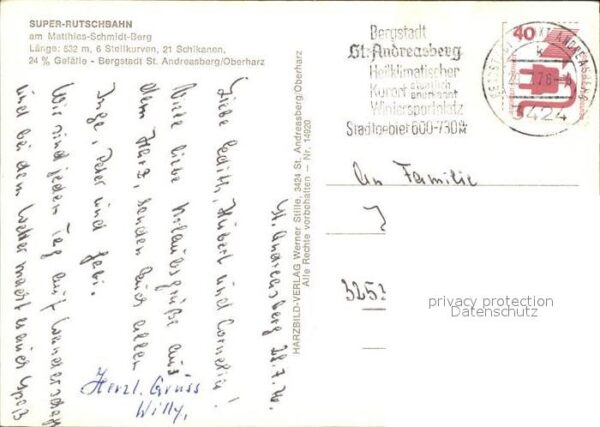 SUPER-RUTSCHBAHN
am Matthias-Schmidt-Berg
Länge: 532 m, 6 Steilkurven, 21 Schikanen,
24 % Gefälle - Bergstadt St. Andreasberg/Oberharz
Bergstadt
St. Andreasberg
Heilklimatischer
Kurort staatlich anerkannt
Wintersportplatz
Stadtgebiet 600-730 m
40
3424
HARZBILD-VERLAG Werner Stille, 3424 St. Andreasberg/Oberharz
Alle Rechte vorbehalten - Nr. 14920
St. Andreasberg 22.7.76
Liebe Edith, Hubert und Cornelia!
Viele liebe Urlaubsgrüße aus
dem Harz, senden Euch allen
Inge, Peter und Gabi.
Wir sind jeden Tag auf Wanderschaft
und bei dem Wetter macht es auch Spaß
Herzl. Gruss
Willy.
An Familie
325
privacy protection
Datenschutz